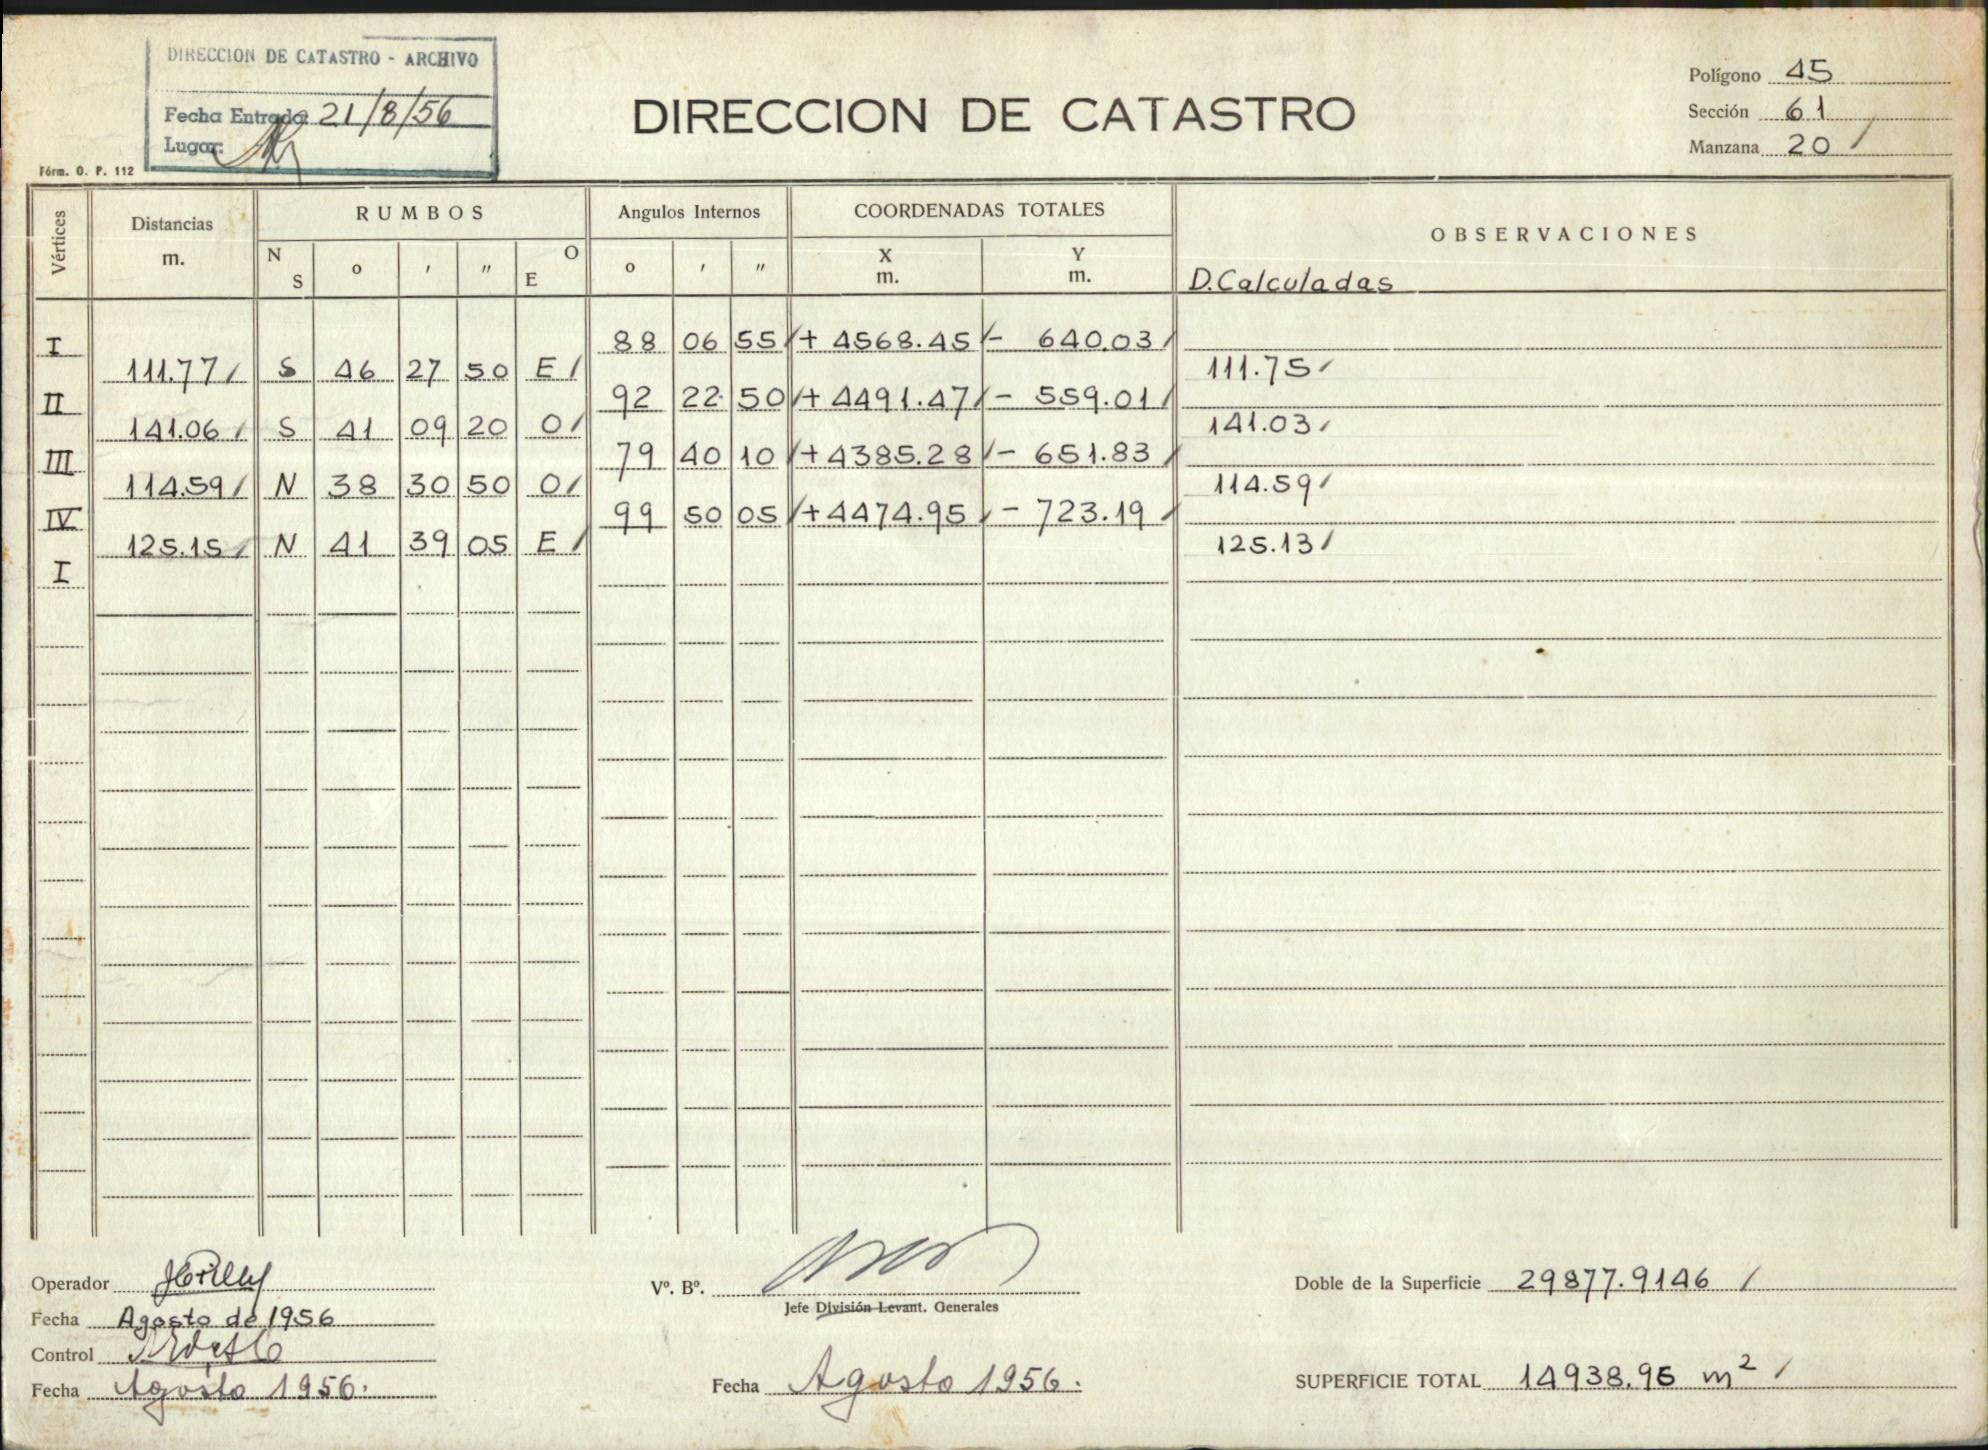 DIRECCION DE CATASTRO - ARCHIVO
Fecha Entrada 21/8/56
Lugar:
Fórm. O. P. 112
DIRECCION DE CATASTRO
Polígono 45
Sección 61
Manzana 20 /
Vértices Distancias m. RUMBOS N S o ' " O E Angulos Internos o ' " COORDENADAS TOTALES X m. Y m. OBSERVACIONES
D. Calculadas
I 88 06 55 / + 4568.45 / - 640.03 /
111.77 / S 46 27 50 E / 111.75 /
II 92 22 50 / + 4491.47 / - 559.01 /
141.06 / S 41 09 20 O / 141.03 /
III 79 40 10 / + 4385.28 / - 651.83 /
114.59 / N 38 30 50 O / 114.59 /
IV 99 50 05 / + 4474.95 / - 723.19 /
125.15 / N 41 39 05 E / 125.13 /
I
Operador
Fecha Agosto de 1956
Control
Fecha Agosto 1956.
Vº. Bº.
Jefe División Levant. Generales
Fecha Agosto 1956.
Doble de la Superficie 29877.9146 /
SUPERFICIE TOTAL 14938.96 m2 /